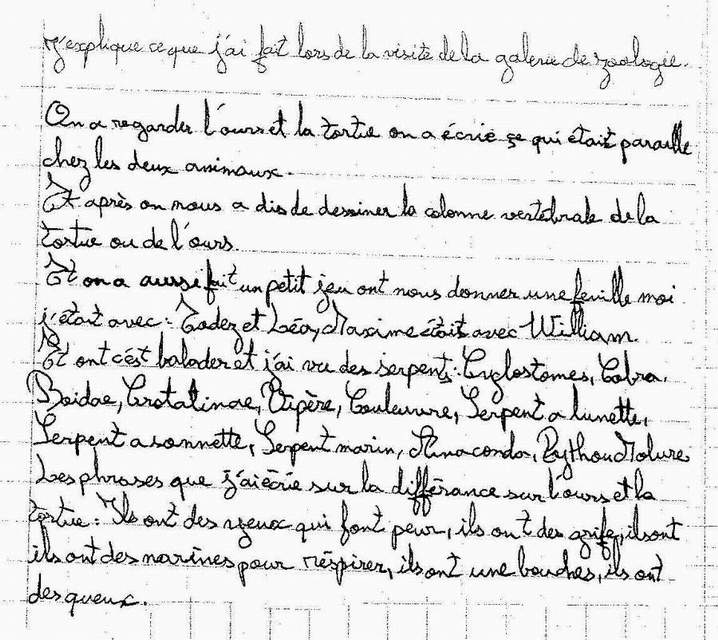 J'explique ce que j'ai fait lors de la visite de la galerie de zoologie.
On a regarder l'ours et la tortue on a écrie se qui était paraille
chez les deux animaux.
Et après on nous a dis de dessiner la colonne vertébrale de la
tortue ou de l'ours.
Et on a aussi fait un petit jeu ont nous donner une feuille moi
j'était avec : et Léa, Maxime était avec William.
Et ont c'est balader et j'ai vu des serpents : Cyclostomes, Cobra,
Boidae, Crotalinae, Vipère, Couleuvre, Serpent a lunette,
Serpent a sonnette, Serpent marin, Anaconda, Python Molure
Les phrases que j'ai écrie sur la différance sur l'ours et la
tortue : Ils ont des yeux qui font peur, ils ont des grife, ils ont
ils ont des narines pour réspirer, ils ont une bouches, ils ont
des queux.